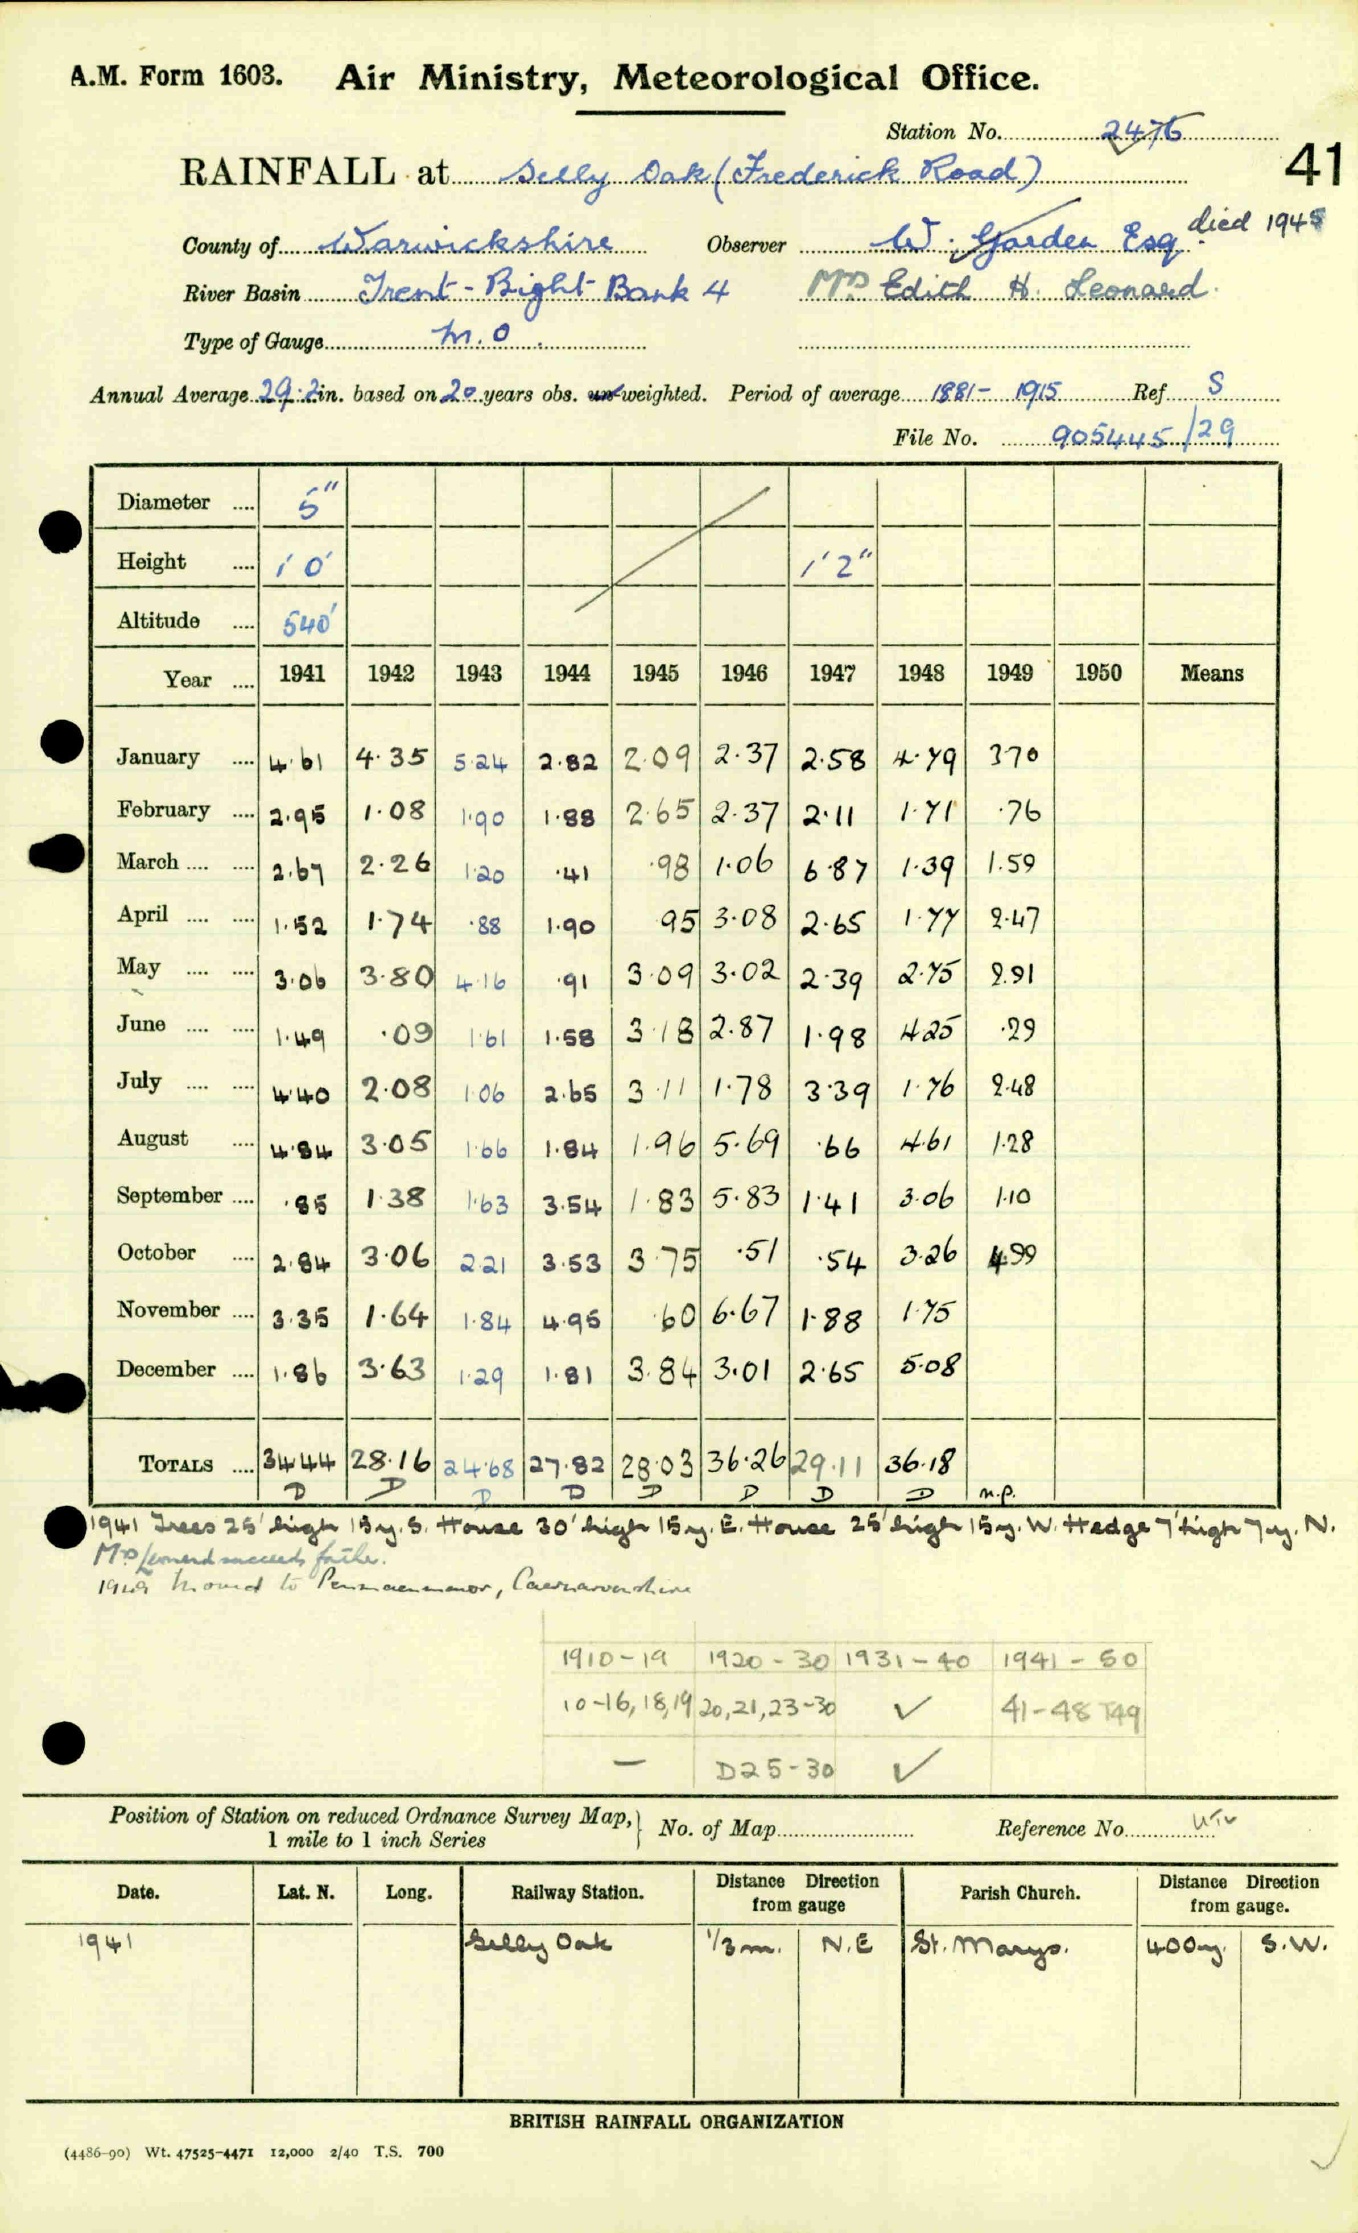 A.M. Form 1603. Air Ministry, Meteorological Office.
Station No. 2476
41
RAINFALL at Selly Oak (Frederick Road)
County of Warwickshire Observer W. Garden Esq. died 1945
River Basin Trent - Right Bank 4 Mrs Edith H. Leonard.
Type of Gauge M.O.
Annual Average 29.2 in. based on 20 years obs. un-weighted. Period of average 1881 - 1915 Ref. S
File No. 905445/29
Diameter .... 5"
Height .... 1' 0" 1' 2"
Altitude .... 540'
Year .... 1941 1942 1943 1944 1945 1946 1947 1948 1949 1950 Means
January .... 4.61 4.35 5.24 2.82 2.09 2.37 2.58 4.79 3.70
February .... 2.95 1.08 1.90 1.88 2.65 2.37 2.11 1.71 .76
March .... .... 2.67 2.26 1.20 .41 .98 1.06 6.87 1.39 1.59
April .... .... 1.52 1.74 .88 1.90 .95 3.08 2.65 1.77 2.47
May .... .... 3.06 3.80 4.16 .91 3.09 3.02 2.39 2.75 2.91
June .... .... 1.49 .09 1.61 1.58 3.18 2.87 1.98 4.25 .29
July .... .... 4.40 2.08 1.06 2.65 3.11 1.78 3.39 1.76 2.48
August .... 4.84 3.05 1.66 1.84 1.96 5.69 .66 4.61 1.28
September .... .85 1.38 1.63 3.54 1.83 5.83 1.41 3.06 1.10
October .... 2.84 3.06 2.21 3.53 3.75 .51 .54 3.26 4.99
November .... 3.35 1.64 1.84 4.95 .60 6.67 1.88 1.75
December .... 1.86 3.63 1.29 1.81 3.84 3.01 2.65 5.08
TOTALS .... 34.44 28.16 24.68 27.82 28.03 36.26 29.11 36.18
D D D D D D D D n.p.
1941 Trees 25' high 15y. S. House 30' high 15y. E. House 25' high 15y. W. Hedge 7' high 7y. N.
Mrs Leonard succeeds father.
1949 Moved to Penmaenmawr, Caernarvonshire
1910-19 1920-30 1931-40 1941-50
10-16, 18, 19 20, 21, 23-30 ✓ 41-48 T49
— D25-30 ✓
Position of Station on reduced Ordnance Survey Map, 1 mile to 1 inch Series } No. of Map Reference No.
Date. Lat. N. Long. Railway Station. Distance Direction from gauge Parish Church. Distance Direction from gauge.
1941 Selly Oak 1/3 m. N.E St. Marys. 400y. S.W.
BRITISH RAINFALL ORGANIZATION
(4486-90) Wt. 47525-4471 12,000 2/40 T.S. 700